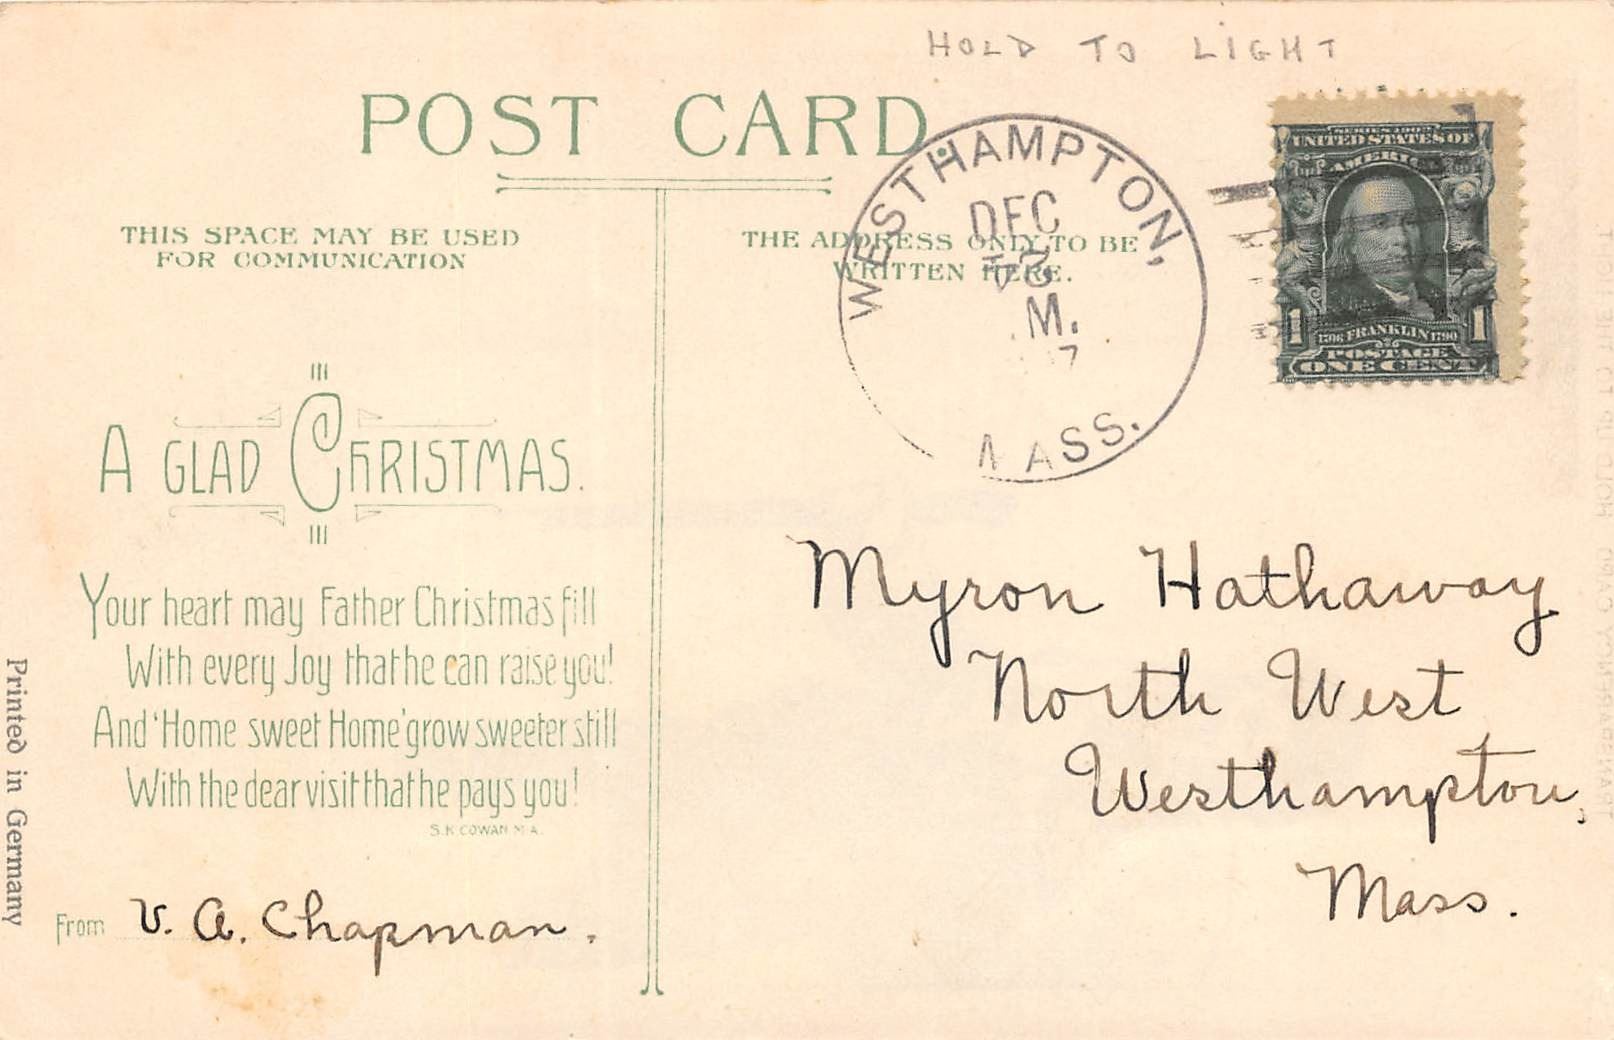 HOLD TO LIGHT
POST CARD
THIS SPACE MAY BE USED
FOR COMMUNICATION
THE ADDRESS ONLY TO BE
WRITTEN HERE.
WESTHAMPTON,
DEC
M.
7
MASS.
SERIES 1902
UNITED STATES OF
AMERICA
1 1
1706 FRANKLIN 1790
POSTAGE
ONE CENT
A GLAD CHRISTMAS.
Your heart may Father Christmas fill
With every Joy that he can raise you!
And 'Home sweet Home' grow sweeter still
With the dear visit that he pays you!
S.K. COWAN M.A.
From V. A. Chapman.
Myron Hathaway
North West
Westhampton,
Mass.
Printed in Germany